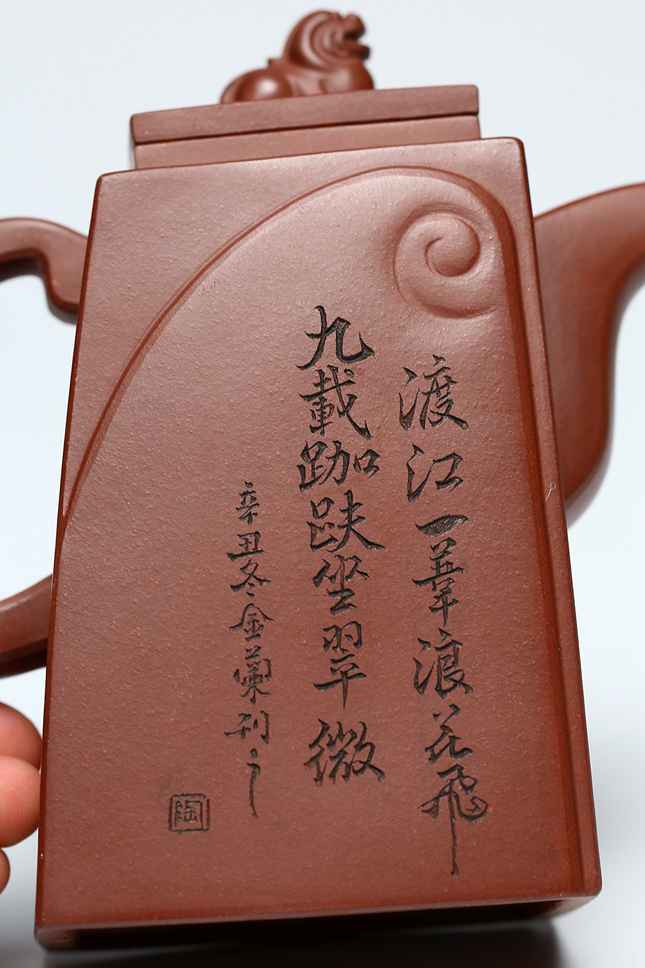 渡江一葦浪花飛
九載跏趺坐翠微
辛丑冬金蘭刊之
陶